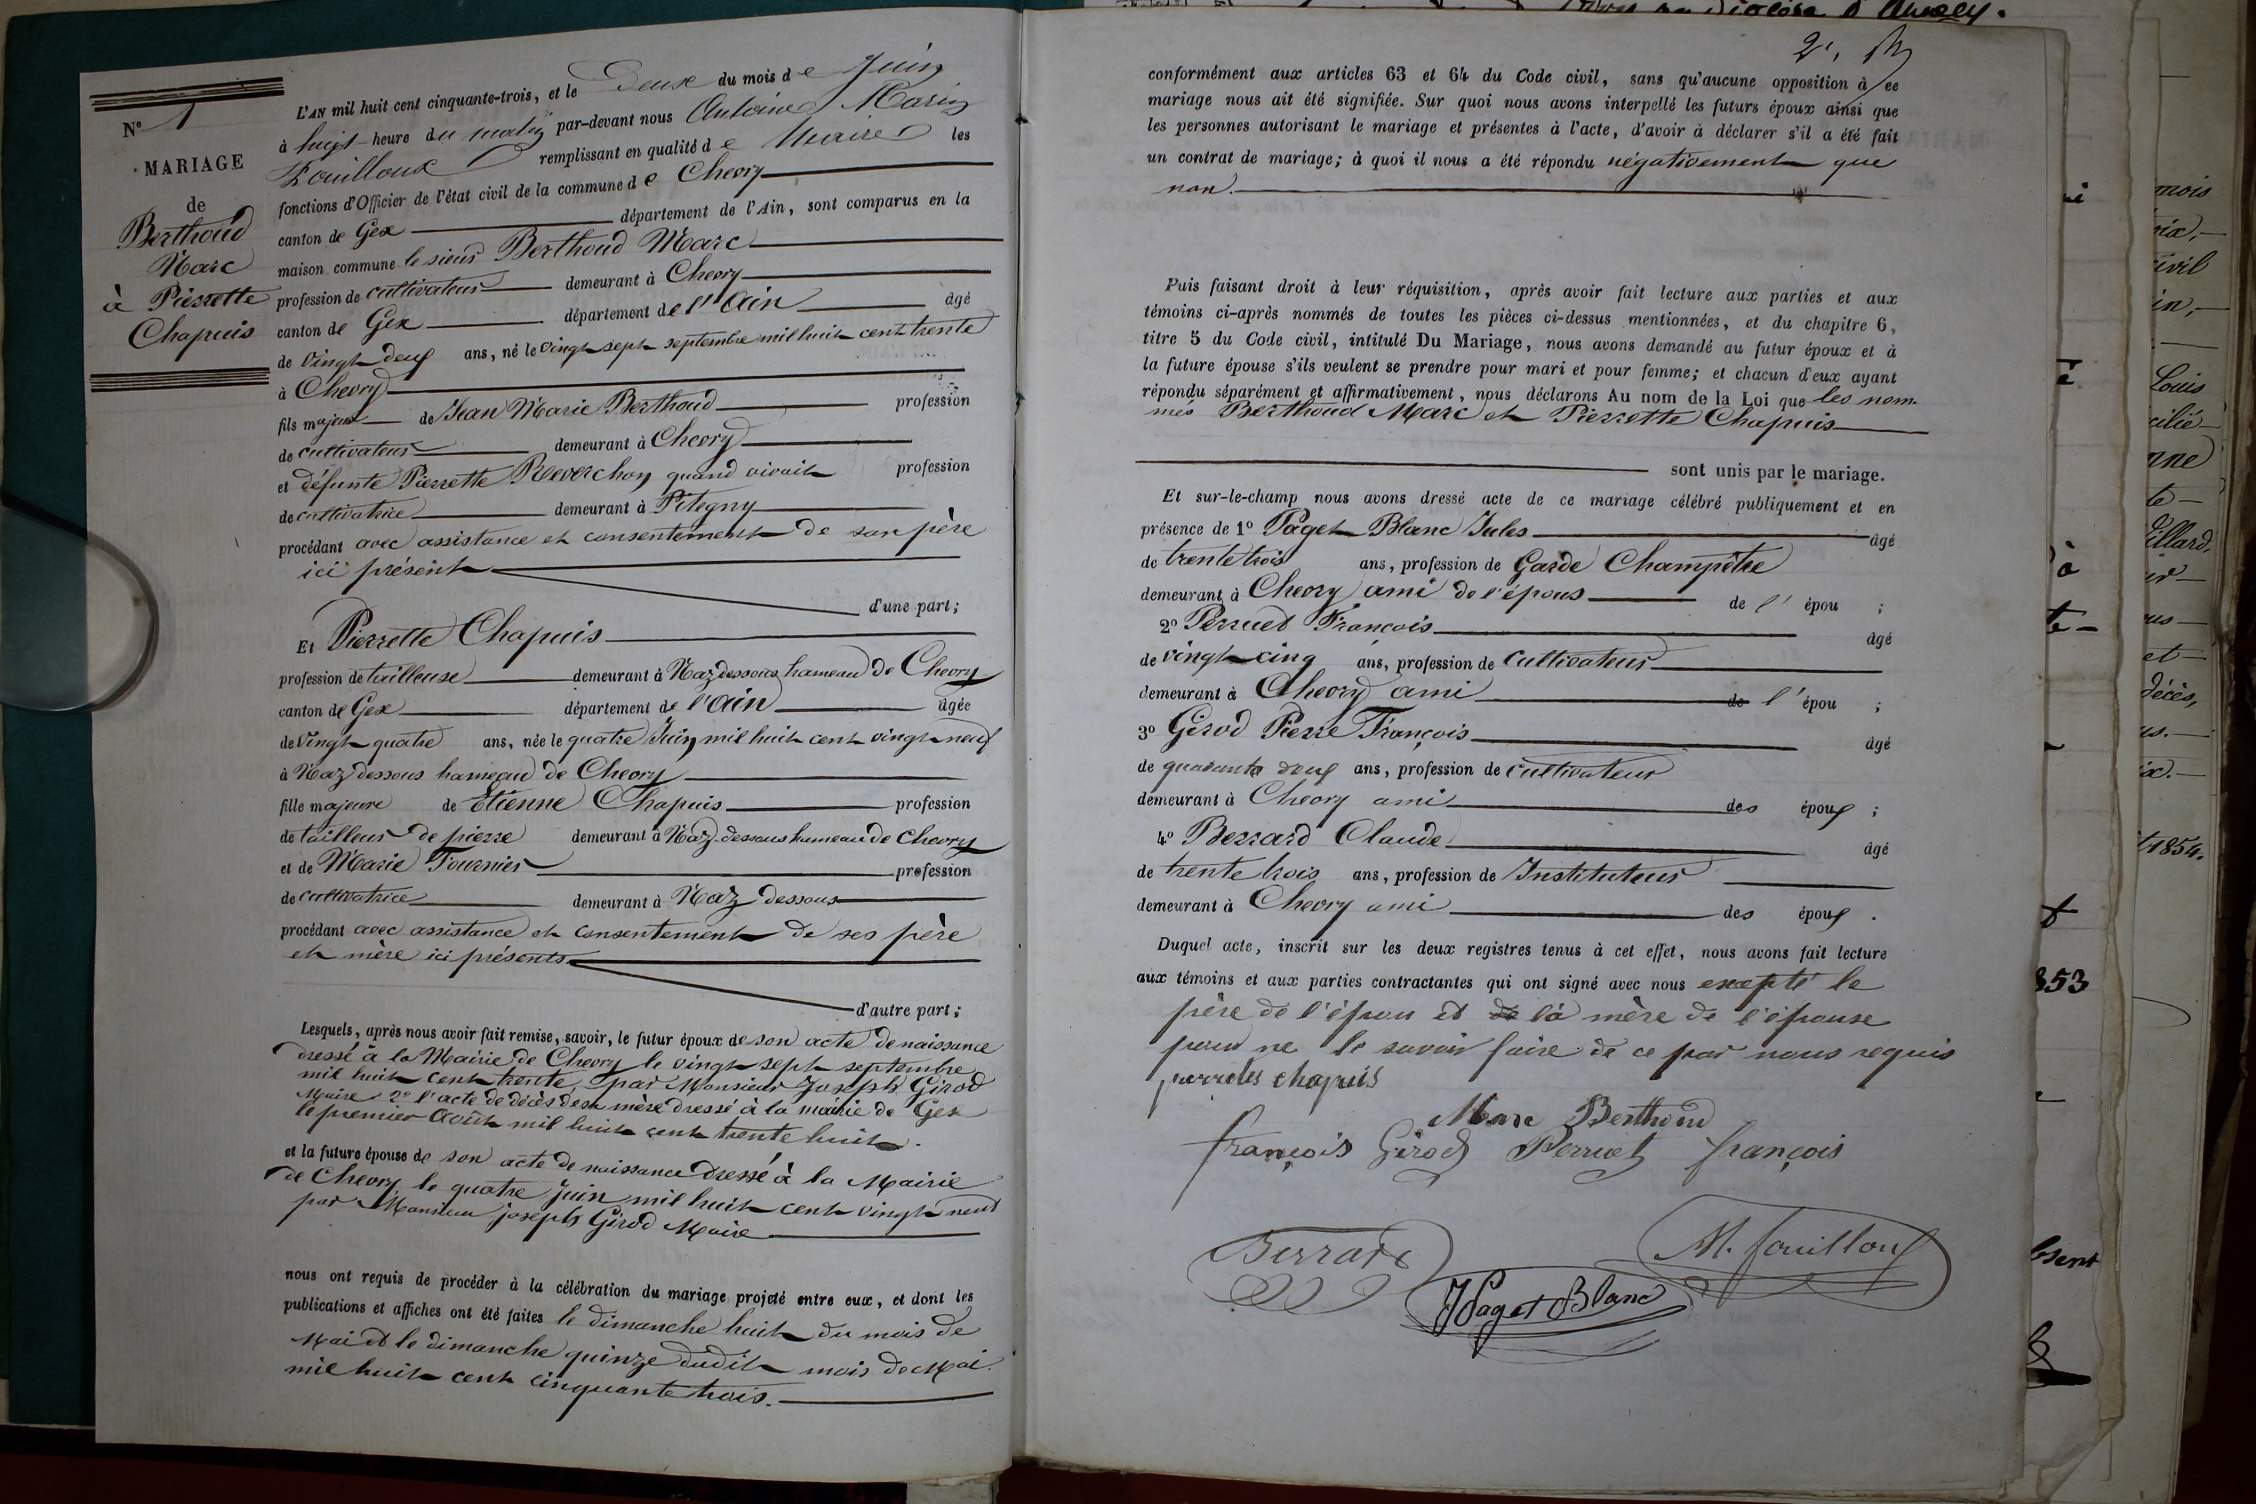 N° 1
MARIAGE
de
Berthoud
Marc
à Pierrette
Chapuis
L'AN mil huit cent cinquante-trois, et le Deux du mois de Juin
à huit heure du matin par-devant nous Antoine Marin
Fouilloux remplissant en qualité de Maire les
fonctions d'Officier de l'état civil de la commune de Chevry
canton de Gex département de l'Ain, sont comparus en la
maison commune le sieur Berthoud Marc
profession de cultivateur demeurant à Chevry
canton de Gex département de l'Ain âgé
de vingt deux ans, né le vingt sept septembre mil huit cent trente
à Chevry
fils majeur de Jean Marie Berthoud profession
de cultivateur demeurant à Chevry
et défunte Pierrette Reverchon quand vivait profession
de cultivatrice demeurant à Pitegny
procédant avec assistance et consentement de son père
ici présent
d'une part;
Et Pierrette Chapuis
profession de tailleuse demeurant à Naz dessous hameau de Chevry
canton de Gex département de l'Ain âgée
de vingt quatre ans, née le quatre Juin mil huit cent vingt neuf
à Naz dessous hameau de Chevry
fille majeure de Etienne Chapuis profession
de tailleur de pierre demeurant à Naz dessous hameau de Chevry
et de Marie Fournier profession
de cultivatrice demeurant à Naz dessous
procédant avec assistance et consentement de ses père
et mère ici présents
d'autre part;
Lesquels, après nous avoir fait remise, savoir, le futur époux de son acte de naissance
dressé à la Mairie de Chevry le vingt sept septembre
mil huit cent trente, par Monsieur Joseph Girod
Maire 2° l'acte de décès de sa mère dressé à la mairie de Gex
le premier Août mil huit cent trente huit.
et la future épouse de son acte de naissance dressé à la Mairie
de Chevry le quatre Juin mil huit cent vingt neuf
par Monsieur joseph Girod Maire
nous ont requis de procéder à la célébration du mariage projeté entre eux, et dont les
publications et affiches ont été faites le dimanche huit du mois de
Mai et le dimanche quinze dudit mois de Mai
mil huit cent cinquante trois.
conformément aux articles 63 et 64 du Code civil, sans qu'aucune opposition à ce
mariage nous ait été signifiée. Sur quoi nous avons interpellé les futurs époux ainsi que
les personnes autorisant le mariage et présentes à l'acte, d'avoir à déclarer s'il a été fait
un contrat de mariage; à quoi il nous a été répondu négativement que
non.
Puis faisant droit à leur réquisition, après avoir fait lecture aux parties et aux
témoins ci-après nommés de toutes les pièces ci-dessus mentionnées, et du chapitre 6,
titre 5 du Code civil, intitulé Du Mariage, nous avons demandé au futur époux et à
la future épouse s'ils veulent se prendre pour mari et pour femme; et chacun d'eux ayant
répondu séparément et affirmativement, nous déclarons Au nom de la Loi que les nom-
més Berthoud Marc et Pierrette Chapuis
sont unis par le mariage.
Et sur-le-champ nous avons dressé acte de ce mariage célébré publiquement et en
présence de 1° Paget Blanc Jules âgé
de trente trois ans, profession de Garde Champêtre
demeurant à Chevry ami de l'épous de l' épou ;
2° Perruet François âgé
de vingt cinq ans, profession de cultivateur
demeurant à Chevry ami de l' épou ;
3° Girod Pierre François âgé
de quarante deux ans, profession de cultivateur
demeurant à Chevry ami des époux ;
4° Berrard Claude âgé
de trente trois ans, profession de Instituteur
demeurant à Chevry ami des époux .
Duquel acte, inscrit sur les deux registres tenus à cet effet, nous avons fait lecture
aux témoins et aux parties contractantes qui ont signé avec nous excepté le
père de l'épou et de la mère de l'épouse
pour ne le savoir faire de ce par nous requis
pierrettes chapuis
Marc Berthoud
françois Girod Perruet françois
Berrard M. fouilloux
J Paget Blanc
mois
civil
in,
Louis
cilié
Villard,
et
décès,
1854.
853